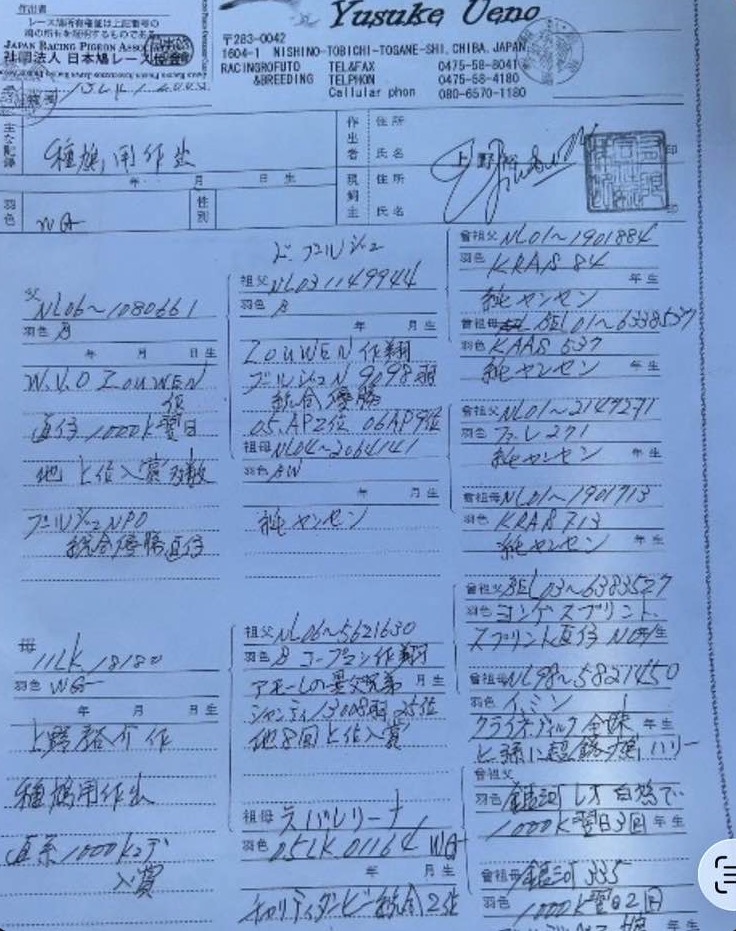 作出者
レース鳩所有権証は上記番号の
鳩の所有を証明するものである
JAPAN RACING PIGEON ASSO
社団法人 日本鳩レース協会
Yusuke Ueno
〒283-0042
1604-1 NISHINO-TOBICHI-TOGANE-SHI, CHIBA, JAPAN
RACINGROFUTO TEL&FAX 0475-58-8041
&BREEDING TELPHON 0475-58-4180
Cellular phon 080-6570-1180
主な記録
種鳩用作出
年 月 日生
作出者
住所
氏名 上野
印
現飼主
住所
氏名
印
羽色 WG
性別
父 NL06~1080661
羽色 B
年 月 日生
W.V.D ZOUWEN
作
直仔1000K翌日
他上位入賞多数
ブールジュNPO
総合優勝直仔
ド ブールジュ
祖父 NL031149944
羽色 B
年 月 生
ZOUWEN 作翔
ブールジュN 9098羽
総合優勝
05.AP2位 06AP9位
祖母 NL04~2064141
羽色 BW
年 月 生
純ヤンセン
曾祖父 NL01~1901884
羽色 KRAS 84
年 生
純ヤンセン
曾祖母 BEL01~6338537
羽色 KAAS 537
純ヤンセン 年 生
曾祖父 NL01~2149271
羽色 271
純ヤンセン 年 生
曾祖母 NL01~1901713
羽色 KRAS 713
純ヤンセン 年 生
母 11LK 18180
羽色 WG
年 月 日生
上野 作
種鳩用作出
直系1000K
入賞
祖父 NL06~5621630
羽色 B コープマン作翔
アモーレの異父兄弟 月 生
シャンティ13008羽 25位
他8回上位入賞
祖母 バレリーナ
羽色 05LK 01164 WG
年 月 生
総合2位
曾祖父 BEL03~6383527
羽色 ヨンゲスプリント
スプリント直仔 生
曾祖母 NL98~5821450
羽色
クライネディルク 年 生
ハリー
曾祖父
羽色 銀河
1000K翌日3回 年 生
曾祖母 銀河335
羽色 1000K翌日2回